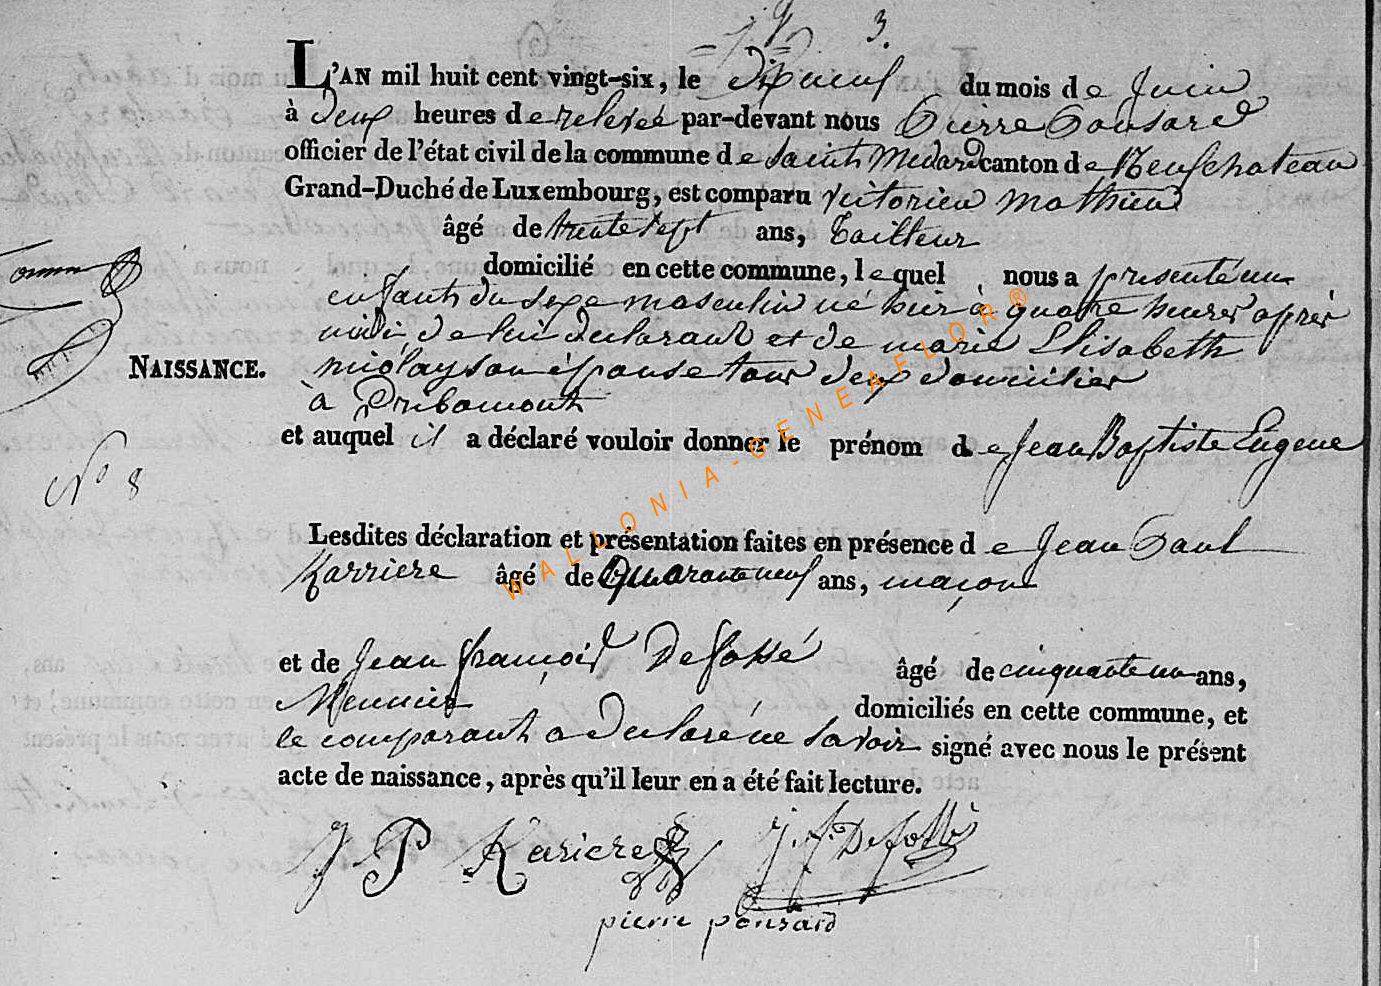 3.
L'AN mil huit cent vingt-six, le Dixneuf du mois de Juin
à Deux heures de relevée par-devant nous Pierre Ponsard
officier de l'état civil de la commune de Saint Medard canton de Neufchateau
Grand-Duché de Luxembourg, est comparu Victorien Mathieu
âgé de trente sept ans, Tailleur
domicilié en cette commune, lequel nous a presenté un
enfant du sexe masculin né hier à quatre heures après
midi, de lui declarant et de marie Elisabeth
son épouse tous deux domicilier
NAISSANCE.
à Pribomont
et auquel il a déclaré vouloir donner le prénom de Jean Baptiste Eugene
No 8
Lesdites déclaration et présentation faites en présence de Jean Paul
Karriere âgé de Quarante neuf ans, maçon
et de Jean françois Defossé âgé de cinquante un ans,
Meunier domiciliés en cette commune, et
le comparant a declaré ne savoir signé avec nous le présent
acte de naissance, après qu'il leur en a été fait lecture.
J P Kariere J. f. Defossé
pierre ponsard
WALLONIA-GENEAFLOR®